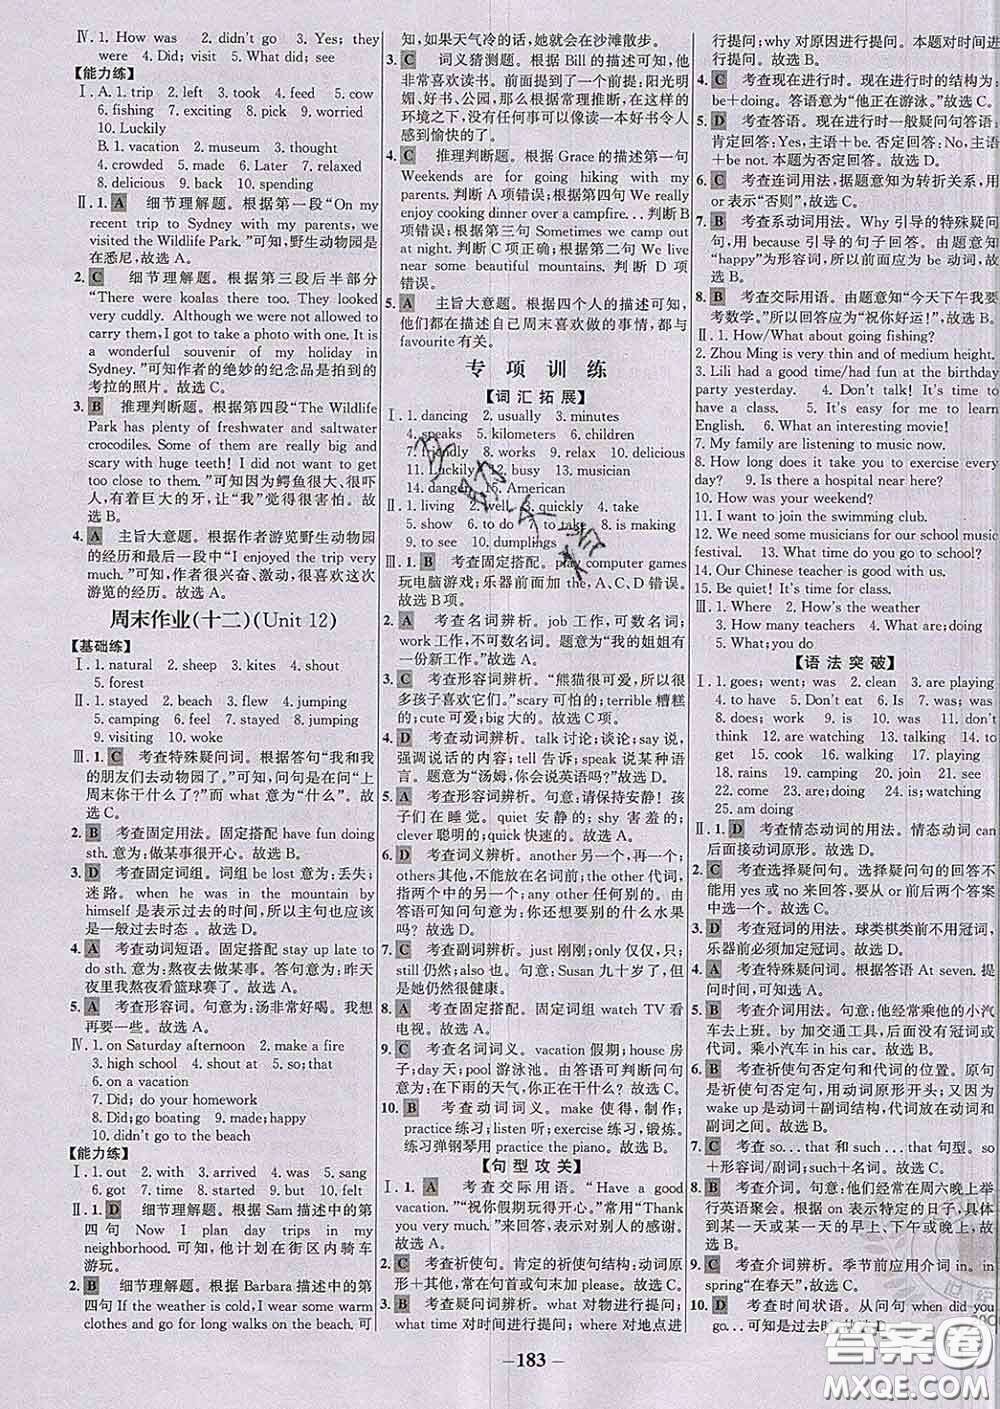 Ⅳ. 1. How was　2. didn't go　3. Yes; they
were　4. Did; visit　5. What did; see
【能力练】
Ⅰ. A. 1. trip　2. left　3. took　4. feed　5. cow
6. fishing　7. exciting　8. pick　9. worried
10. Luckily
B. 1. vacation　2. museum　3. thought
4. crowded　5. made　6. Later　7. relaxed
8. delicious　9. back　10. spending
Ⅱ. 1. A　细节理解题。根据第一段“On my
recent trip to Sydney with my parents, we
visited the Wildlife Park.”可知,野生动物园是
在悉尼。故选 A。
2. C　细节理解题。根据第三段后半部分
“There were koalas there too. They looked
very cuddly. Although we were not allowed to
carry them, I got to take a photo with one. It
is a wonderful souvenir of my holiday in
Sydney.”可知作者的绝妙的纪念品是拍到的
考拉的照片。故选 C。
3. B　推理判断题。根据第四段“The Wildlife
Park has plenty of freshwater and saltwater
crocodiles. Some of them are really big and
scary with huge teeth! I did not want to get
too close to them.”可知因为鳄鱼很大、很吓
人,有着巨大的牙,让“我”觉得很害怕。故选 B。
4. A　主旨大意题。根据作者游览野生动物园
的经历和最后一段中“I enjoyed the trip very
much.”可知,作者很兴奋、激动,很喜欢这次
游览的经历。故选 A。
周末作业(十二)(Unit 12)
【基础练】
Ⅰ. 1. natural　2. sheep　3. kites　4. shout
5. forest
Ⅱ. 1. stayed　2. beach　3. flew　4. jumping
5. camping　6. feel　7. stayed　8. jumping
9. visiting　10. woke
Ⅲ. 1. C　考查特殊疑问词。根据答句“我和我
的朋友们去动物园了。”可知,问句是在问“上
周末你干什么了?”而 what 意为“什么”。故
选 C。
2. B　考查固定用法。固定搭配 have fun doing
sth. 意为:做某事很开心。故选 B。
3. D　考查固定词组。词组 be lost 意为:丢失;
迷路。when he was in the mountain by
himself 是表示过去的时间,所以主句也应该
是一般过去时态。故选 D。
4. A　考查动词短语。固定搭配 stay up late to
do sth. 意为:熬夜去做某事。答句意为:昨天
夜里我熬夜看篮球赛了。故选 A。
5. A　考查形容词。句意为:汤非常好喝。我想
再要一些。故选 A。
Ⅳ. 1. on Saturday afternoon　2. make a fire
3. high school　4. shout at　5. so; that
6. on a vacation
7. Did; do your homework
8. Did; go boating　9. made; happy
10. didn't go to the beach
【能力练】
Ⅰ. 1. out　2. with　3. arrived　4. was　5. sang
6. got　7. time　8. started　9. but　10. felt
Ⅱ. 1. D　细节理解题。根据 Sam 描述中的第
四句 Now I plan day trips in my
neighborhood. 可知,他计划在街区内骑车
游玩。
2. B　细节理解题。根据 Barbara 描述中的第
四句 If the weather is cold, I wear some warm
clothes and go for long walks on the beach. 可
知,如果天气冷的话,她就会在沙滩散步。
3. C　词义猜测题。根据 Bill 的描述可知,他
非常喜欢读书。前面提到了一些例子:阳光明
媚、好书、公园,那么根据常理推断,在这样的
环境之下,没有任何事可以像读一本好书令人
感到愉快的了。故选 C。
4. C　推理判断题。根据 Grace 的描述第一句
Weekends are for going hiking with my
parents. 判断 A 项错误;根据第四句 We really
enjoy cooking dinner over a campfire... 判断 B
项错误;根据第三句 Sometimes we camp out
at night. 判断 C 项正确;根据第二句 We live
near some beautiful mountains. 判断 D 项
错误。
5. A　主旨大意题。根据四个人的描述可知,
他们都在描述自己周末喜欢做的事情,都与
favourite 有关。
专项训练
【词汇拓展】
Ⅰ. 1. dancing　2. usually　3. minutes
4. speaks　5. kilometers　6. children
7. friendly　8. works　9. relax　10. delicious
11. Luckily　12. busy　13. musician
14. danger　15. American
Ⅱ. 1. living　2. well　3. quickly　4. take
5. show　6. to do　7. to take　8. is making
9. to see　10. dumplings
Ⅲ. 1. B　考查固定搭配。play computer games
玩电脑游戏;乐器前面加 the,A、C、D 错误。
故选 B。
2. A　考查名词辨析。job 工作,可数名词;
work 工作,不可数名词。题意为“我的姐姐有
一份新工作。”故选 A。
3. C　考查形容词辨析。“熊猫很可爱,所以很
多孩子喜欢它们。”scary 可怕的;terrible 糟糕
的;cute 可爱;big 大的。故选 C 项。
4. D　考查动词辨析。talk 讨论;谈论;say 说,
强调说话的内容;tell 告诉;speak 说某种语
言。题意为:“汤姆,你会说英语吗?”故选 D。
5. A　考查形容词辨析。句意:请保持安静!孩
子们在睡觉。quiet 安静的;shy 害羞的;
clever 聪明的;quick 快速的。故选 A。
6. D　考查词义辨析。another 另一个,再一个;
others 其他,不能放在名词前;the other 代词,
指两者中的另一个;any other 任何别的。由
答语可知问句意为:你有别的什么水果
吗? 故选 D。
7. C　考查副词辨析。just 刚刚;only 仅仅,只;
still 仍然;also 也。句意:Susan 九十岁了,但
是她仍然很健康。故选 C。
8. C　考查固定搭配。固定词组 watch TV 看
电视。故选 C。
9. C　考查名词词义。vacation 假期;house 房
子;day 天;pool 游泳池。由答语可判断问句
意为:在下雨的天气,你正在干什么? 故选 C。
10. B　考查动词词义。make 使得,制作;
practice 练习;listen 听;exercise 练习,锻炼。
练习弹钢琴用 practice the piano。故选 B。
【句型攻关】
Ⅰ. 1. A　考查交际用语。“Have a good
vacation.”“祝你假期玩得开心。”常用“Thank
you very much.”来回答,表示对别人的感谢。
故选 A。
2. C　考查祈使句。肯定的祈使句结构:动词原
形+其他,常在句首或句末加 please。故选 C。
3. B　考查疑问词辨析。what 对物进行提问;
what time 对时间进行提问; where 对地点进
行提问;why 对原因进行提问。本题对时间进
行提问。故选 B。
4. C　考查现在进行时。现在进行时的结构为:
be+doing。答语意为“他正在游泳。”故选 C。
5. D　考查答语。现在进行时一般疑问句答语:
肯定回答:Yes,主语+be. 否定回答:No,主语
+be not. 本题为否定回答。故选 D。
6. C　考查连词用法。据题意知为转折关系,用
or 表示“否则”。故选 C。
7. B　考查系动词用法。Why 引导的特殊疑问
句,用 because 引导的句子回答。由题意知
“happy”为形容词,所以前面应为 be 动词,故
选 B。
8. B　考查交际用语。由题意知“今天下午我要
考数学。”所以回答应为“祝你好运!”。故选 B。
Ⅱ. 1. How/What about going fishing?
2. Zhou Ming is very thin and of medium height.
3. Lili had a good time/had fun at the birthday
party yesterday.　4. Don't talk! It's time to
have a class.　5. It's easy for me to learn
English.　6. What an interesting movie!
7. My family are listening to music now.
8. How long does it take you to exercise every
day?　9. Is there a hospital near here?
10. How was your weekend?
11. I want to join the swimming club.
12. We need some musicians for our school music
festival.　13. What time do you go to school?
14. Our Chinese teacher is good with us.
15. Be quiet! It's time for class.
Ⅲ. 1. Where　2. How's the weather
3. How many teachers　4. What are; doing
5. What; you do
【语法突破】
Ⅰ. 1. goes; went; was　2. clean　3. are playing
4. to have　5. Don't eat　6. Is　7. was; was
8. does; work　9. is　10. was　11. don't
think　12. are watering　13. talking　14. to
get　15. cook　16. walking　17. playing
18. rains　19. camping　20. join　21. see
22. come　23. are; doing　24. is; watching
25. am doing
Ⅱ. 1. D　考查情态动词的用法。情态动词 can
后面接动词原形。故选 D。
2. C　考查选择疑问句。选择疑问句的回答不
能用 yes 或 no 来回答,要从 or 前后两个答案
中选一个。故选 C。
3. D　考查冠词的用法。球类棋类前不用冠词,
乐器前必须加定冠词。故选 D。
4. A　考查特殊疑问词。根据答语 At seven. 提
问时间,可知选 A。
5. B　考查介词用法。句意:他经常乘他的小汽
车去上班。by 加交通工具,后面没有冠词或代
词。乘小汽车 in his car。故选 B。
6. B　考查祈使句否定句和代词的位置。原句
是祈使句否定句,用动词原形开头;又因为
wake up 是动词+副词结构,代词放在动词和
副词之间。故选 B。
7. C　考查 so...that 和 such...that 句型。so
+形容词/副词;such+名词。故选 C。
8. B　考查介词。句意:他们经常在周六晚上举
行英语聚会。根据 on 表示特定的日子,具体
某一天或某一天的早上、下午或晚上,故
选 B。
9. C　考查介词辨析。季节前应用介词 in。in
spring“在春天”,故选 C。
10. D　考查时间状语。从问句 when did you
go... 可知是过去时。故选 D。
— 183 —
答案圈
MXQE.COM